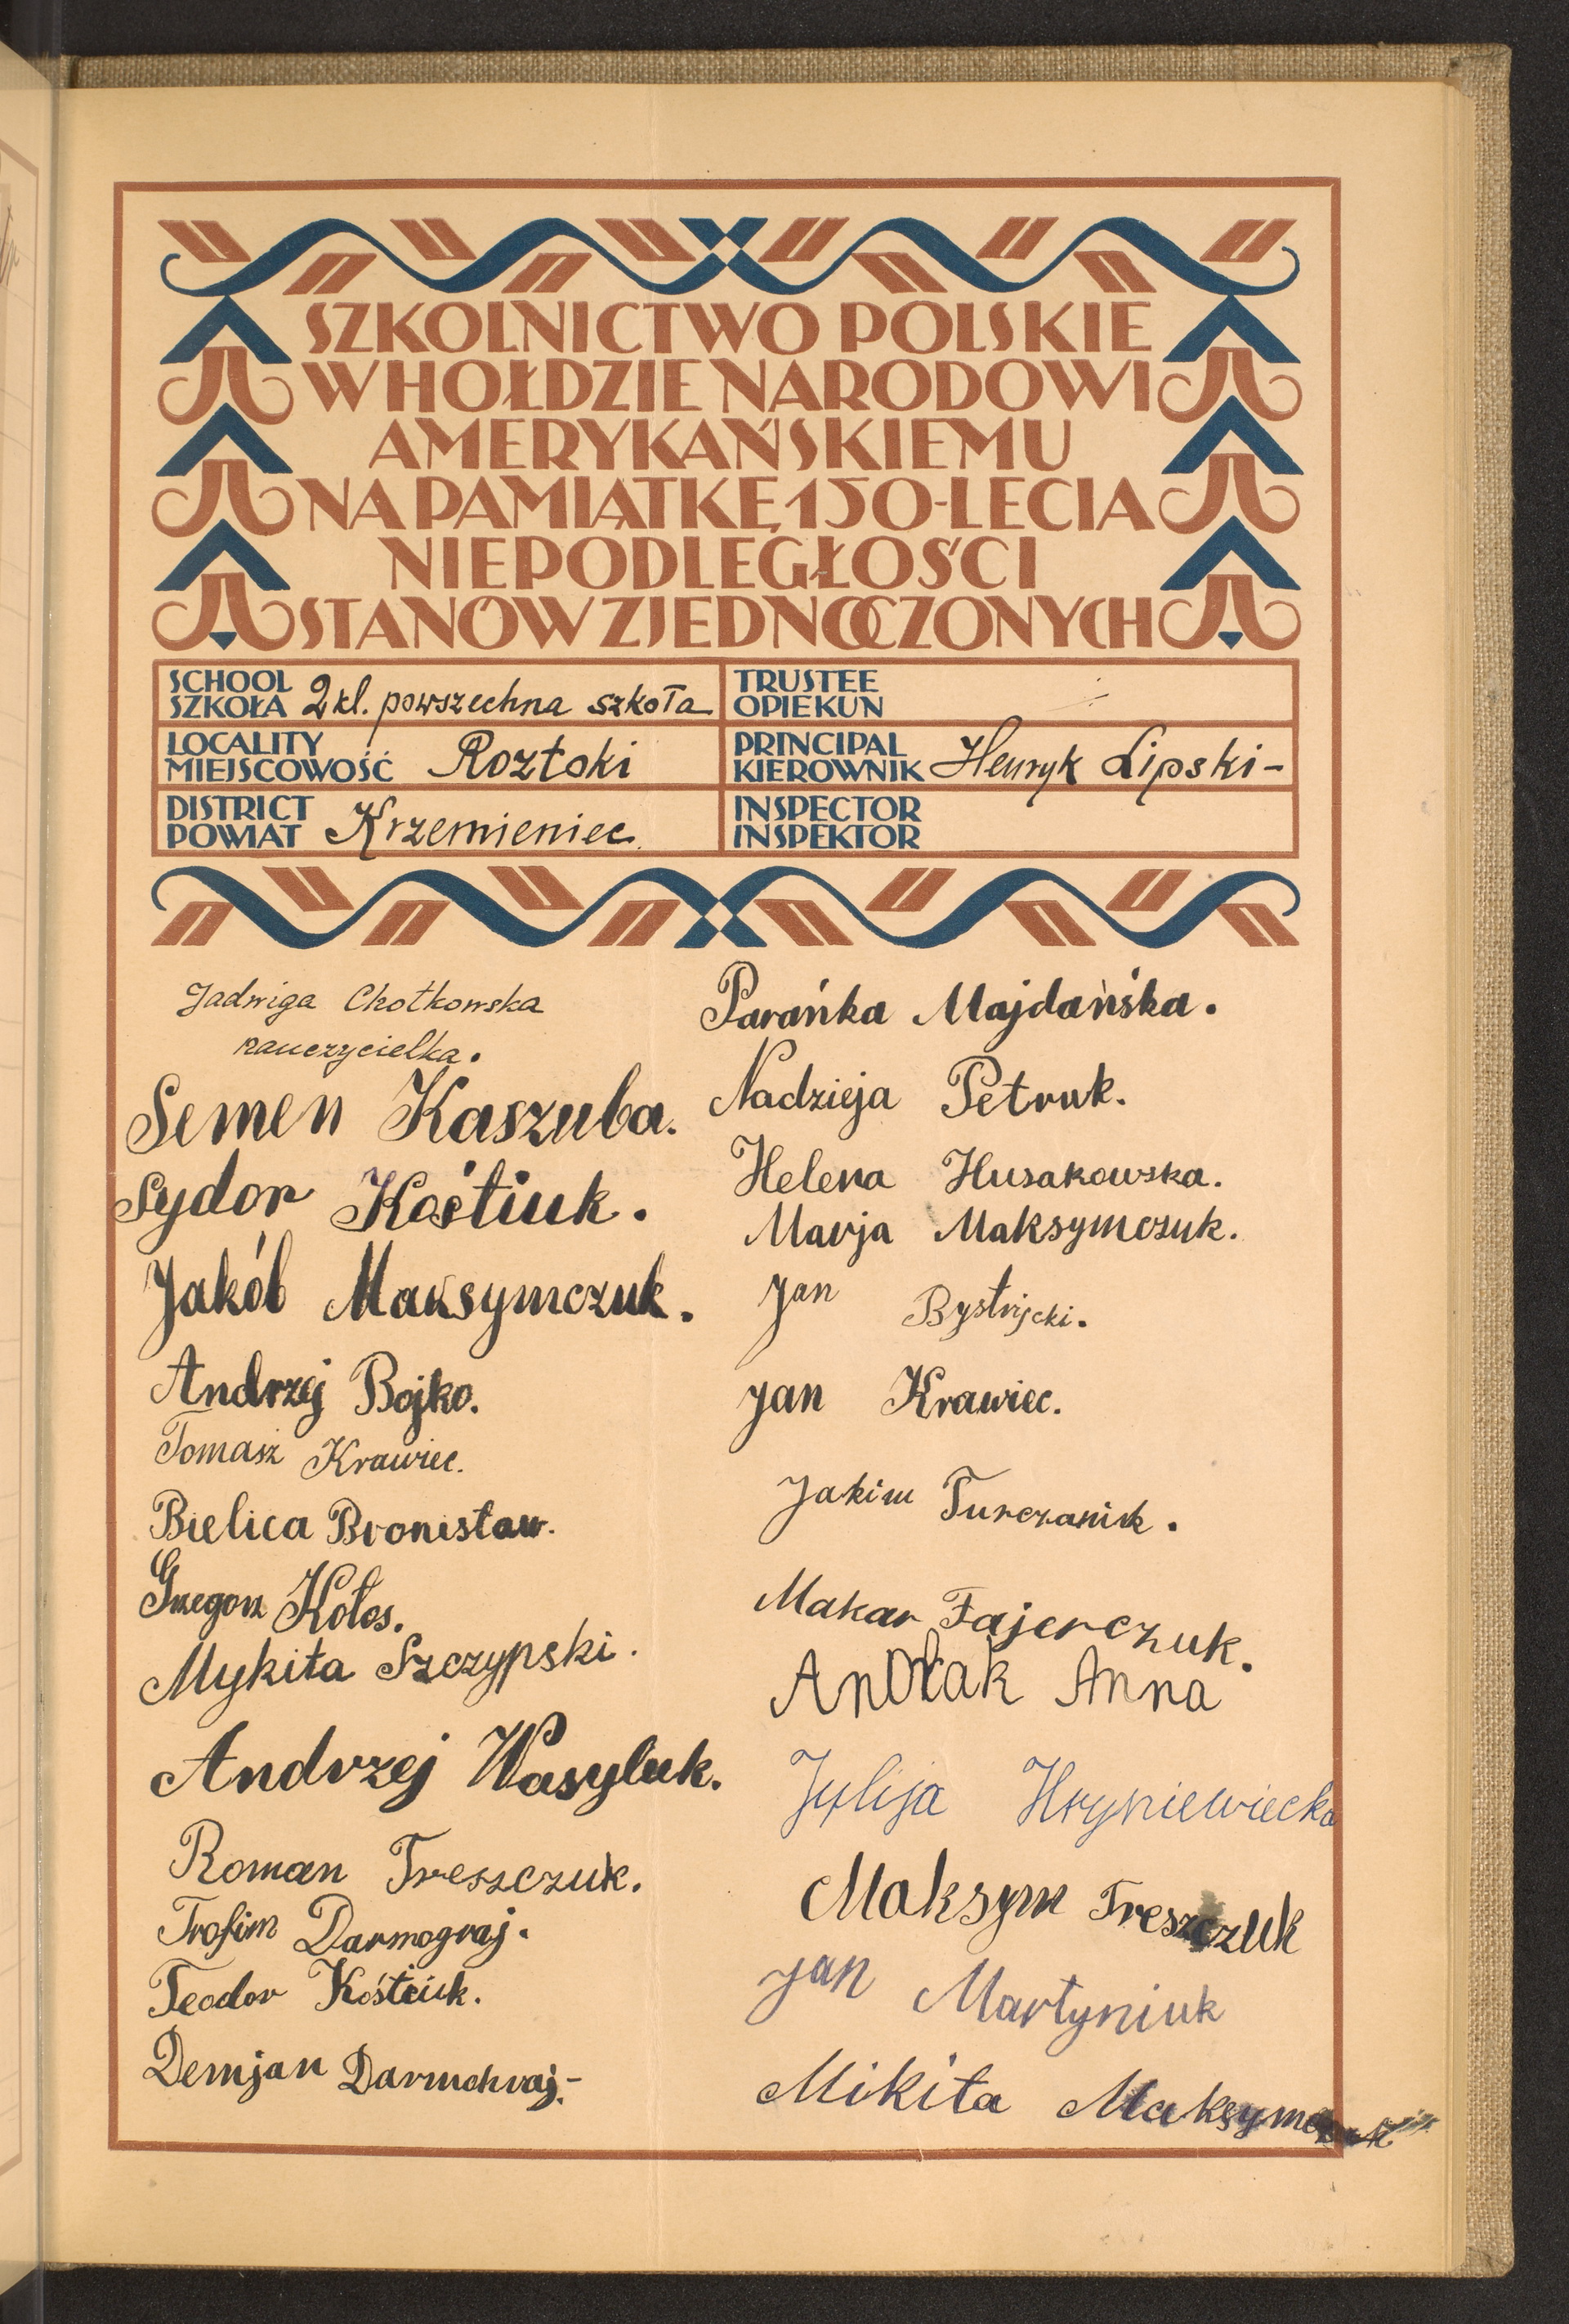 SZKOLNICTWO POLSKIE
W HOŁDZIE NARODOWI
AMERYKAŃSKIEMU
NA PAMIĄTKĘ 150-LECIA
NIEPODLEGŁOŚCI
STANÓW ZJEDNOCZONYCH
SCHOOL
SZKOŁA 2 kl. powszechna szkoła
TRUSTEE
OPIEKUN
LOCALITY
MIEJSCOWOŚĆ Roztoki
PRINCIPAL
KIEROWNIK Henryk Lipski -
DISTRICT
POWIAT Krzemieniec.
INSPECTOR
INSPEKTOR
Jadwiga Chotkowska
nauczycielka.
Semen Kaszuba.
Sydor Kośtiuk.
Jakób Maksymczuk.
Andrzej Bojko.
Tomasz Krawiec.
Bielica Bronisław.
Grzegorz Kołos.
Mykita Szczypski.
Andrzej Wasyluk.
Roman Treszczuk.
Trofim Darmograj.
Teodor Kośtiuk.
Demjan Darmohraj.-
Parańka Majdańska.
Nadzieja Petruk.
Helena Husakowska.
Marja Maksymczuk.
Jan Bystrijcki.
Jan Krawiec.
Jakim Turczanik.
Makar Fajerczuk.
Anna
Julija Hryniewiecka
Maksym Treszczuk
Jan Martyniuk
Mikita Maksymczuk